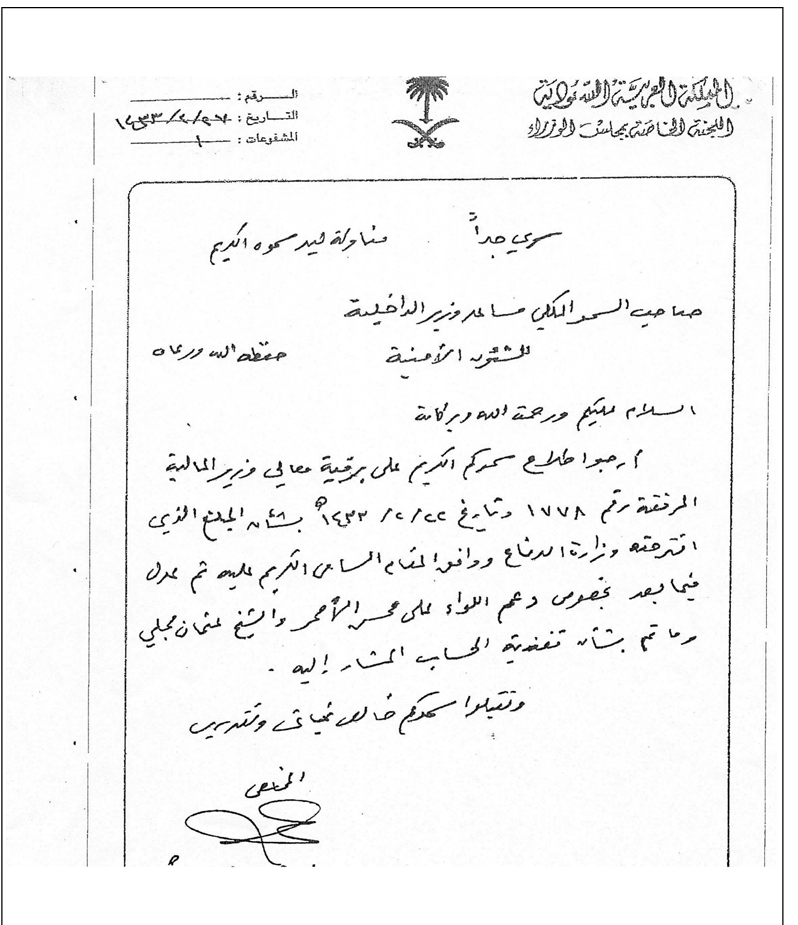 المملكة العربية السعودية
اللجنة الخاصة بمجلس الوزراء
الرقم :
التاريخ : ١٤٣٣/٢/٢٧
المشفوعات : ١
سري جداً مناولة ليد سموه الكريم
صاحب السمو الملكي مساعد وزير الداخلية
للشئون الأمنية حفظه الله ورعاه
السلام عليكم ورحمة الله وبركاته
أرجوا اطلاع سموكم الكريم على برقية معالي وزير المالية
المرفقة رقم ١٧٧٨ وتاريخ ٢٢/ ٢/ ١٤٣٣هـ بشأن المبلغ الذي
اقترحته وزارة الدفاع ووافق المقام السامي الكريم عليه ثم عدل
فيما بعد بخصوص دعم اللواء على محسن الأحمر والشيخ عثمان مجلي
وما تم بشأن تغذية الحساب المشار إليه .
وتقبلوا سموكم خالص تحياتي وتقديري
المخلص